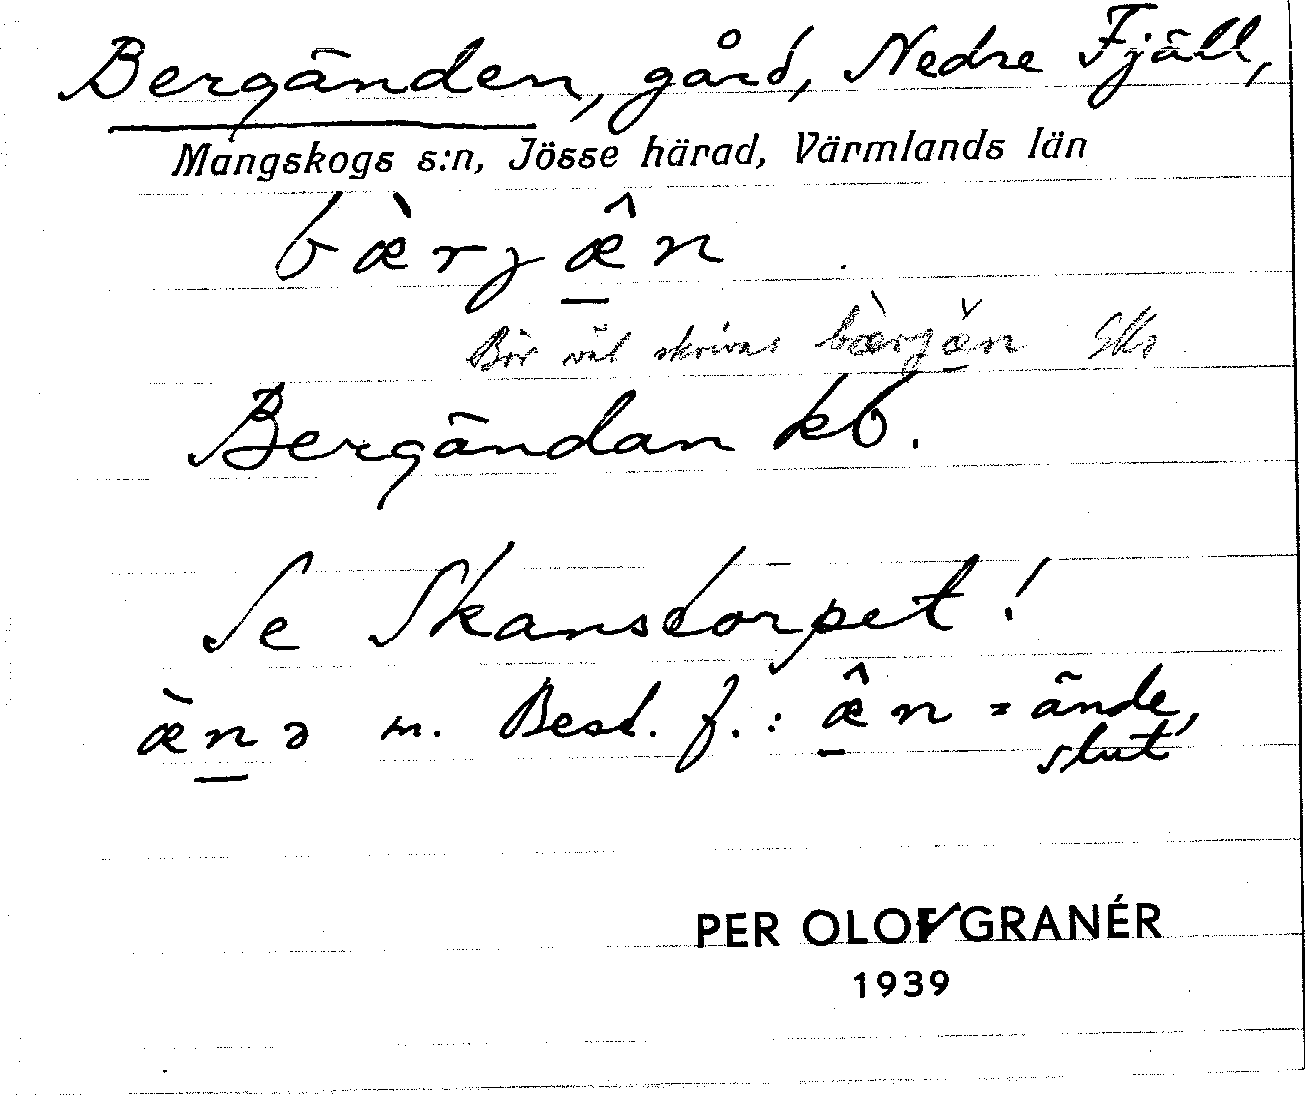 Bergänden, gård, Nedre Fjäll,
Mangskogs s:n, Jösse härad, Värmlands län
bæ̀rjæ̂n
Bör väl skrivas bæ̀rjæ̌n
Bergändan kb.
Se Skanstorpet!
æ̀nə m. Best. f.: æ̂n = ände,
slut
PER OLOF GRANÉR
1939